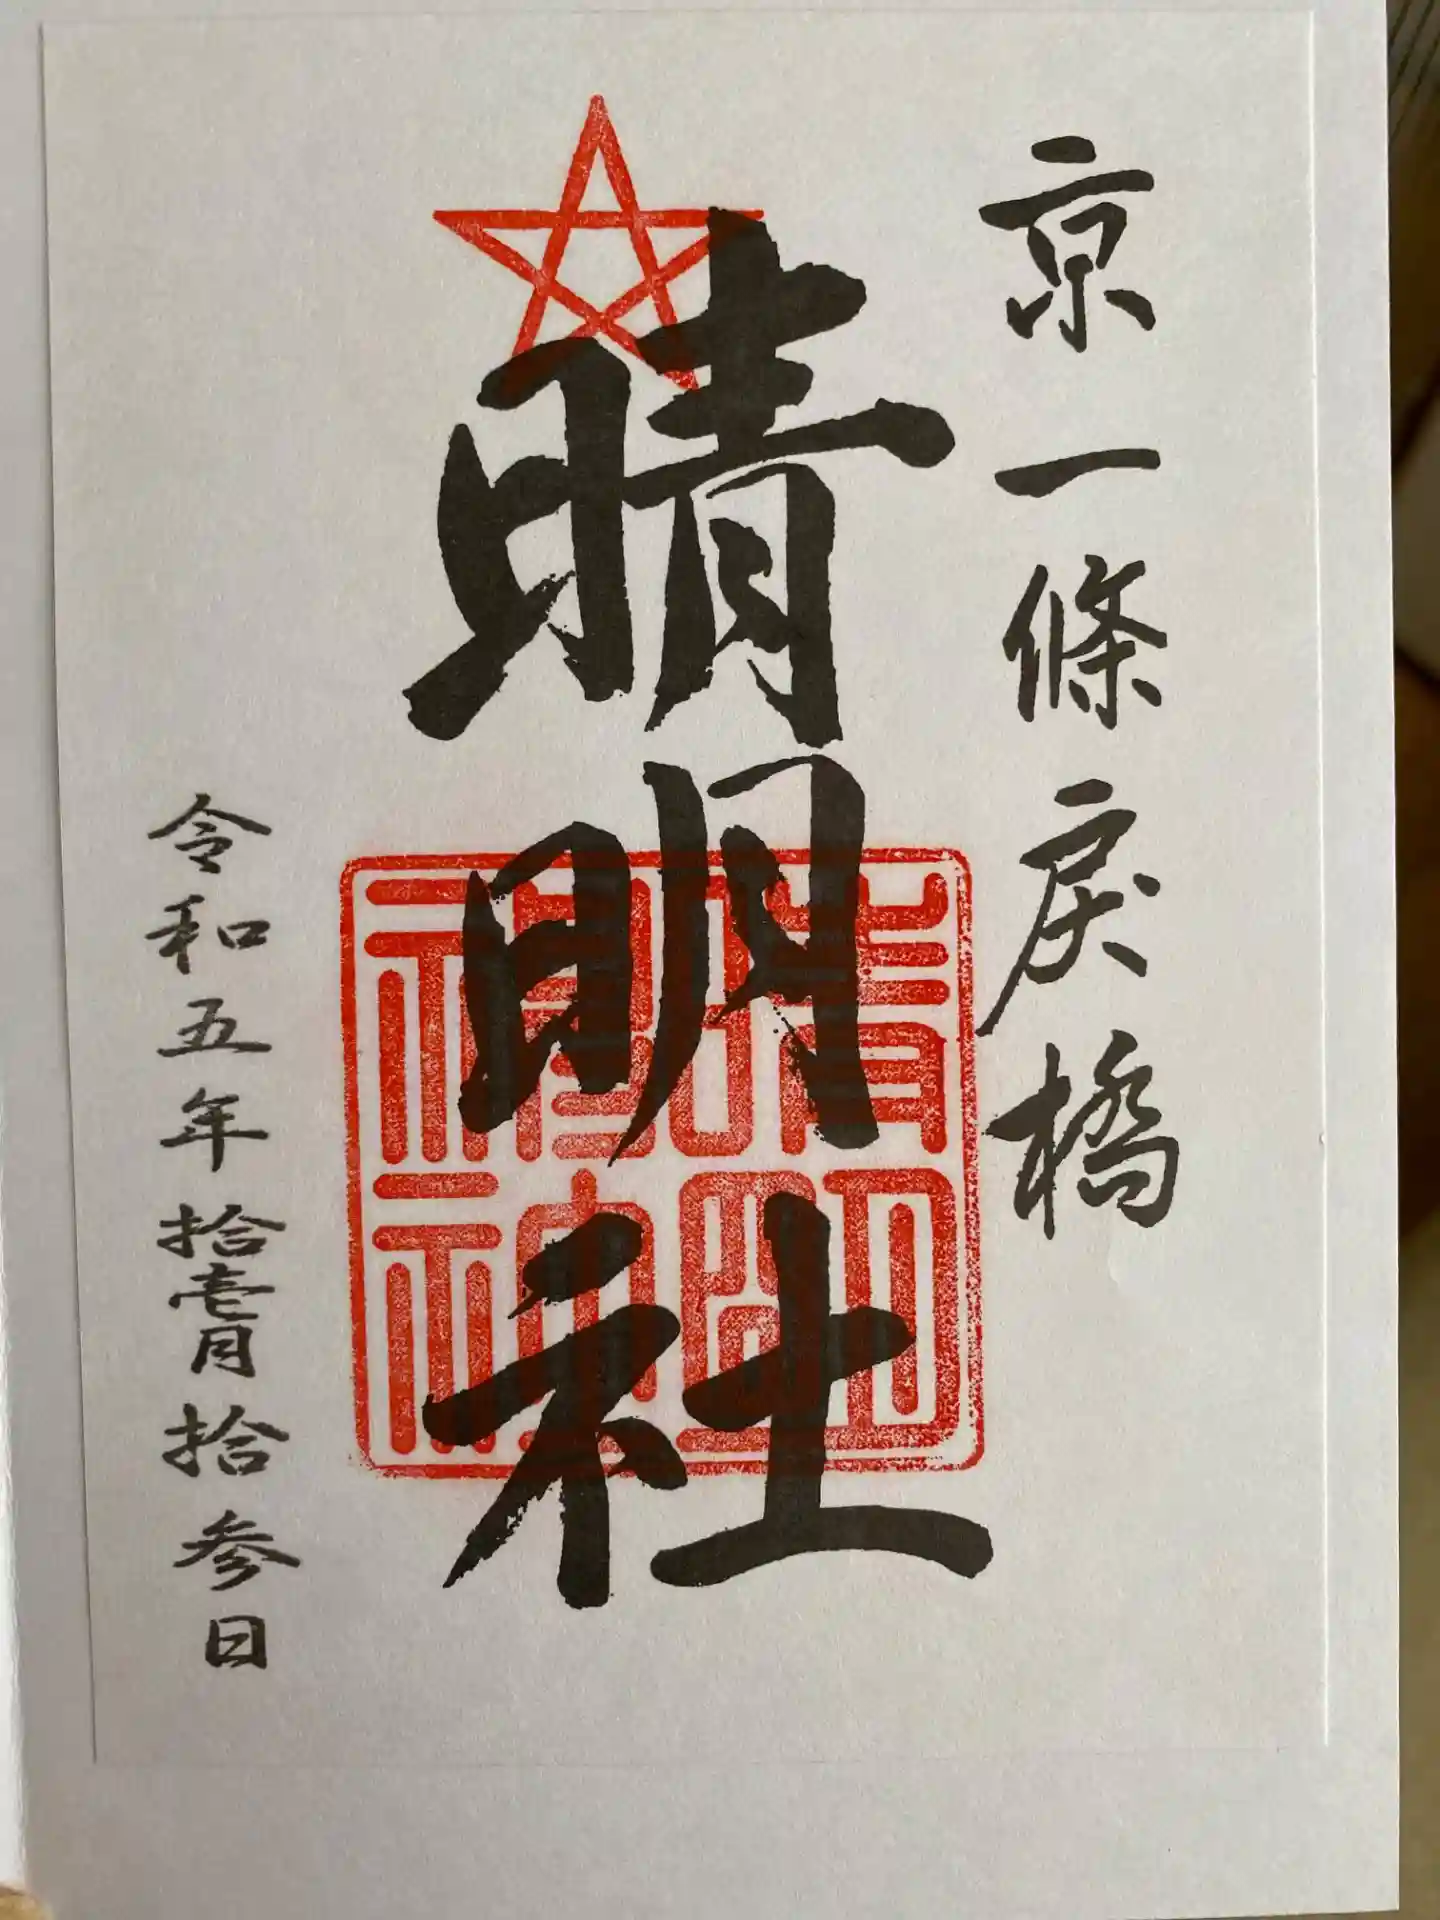 京一條戻橋
晴明社
晴明
神社
令和五年拾壱月拾参日